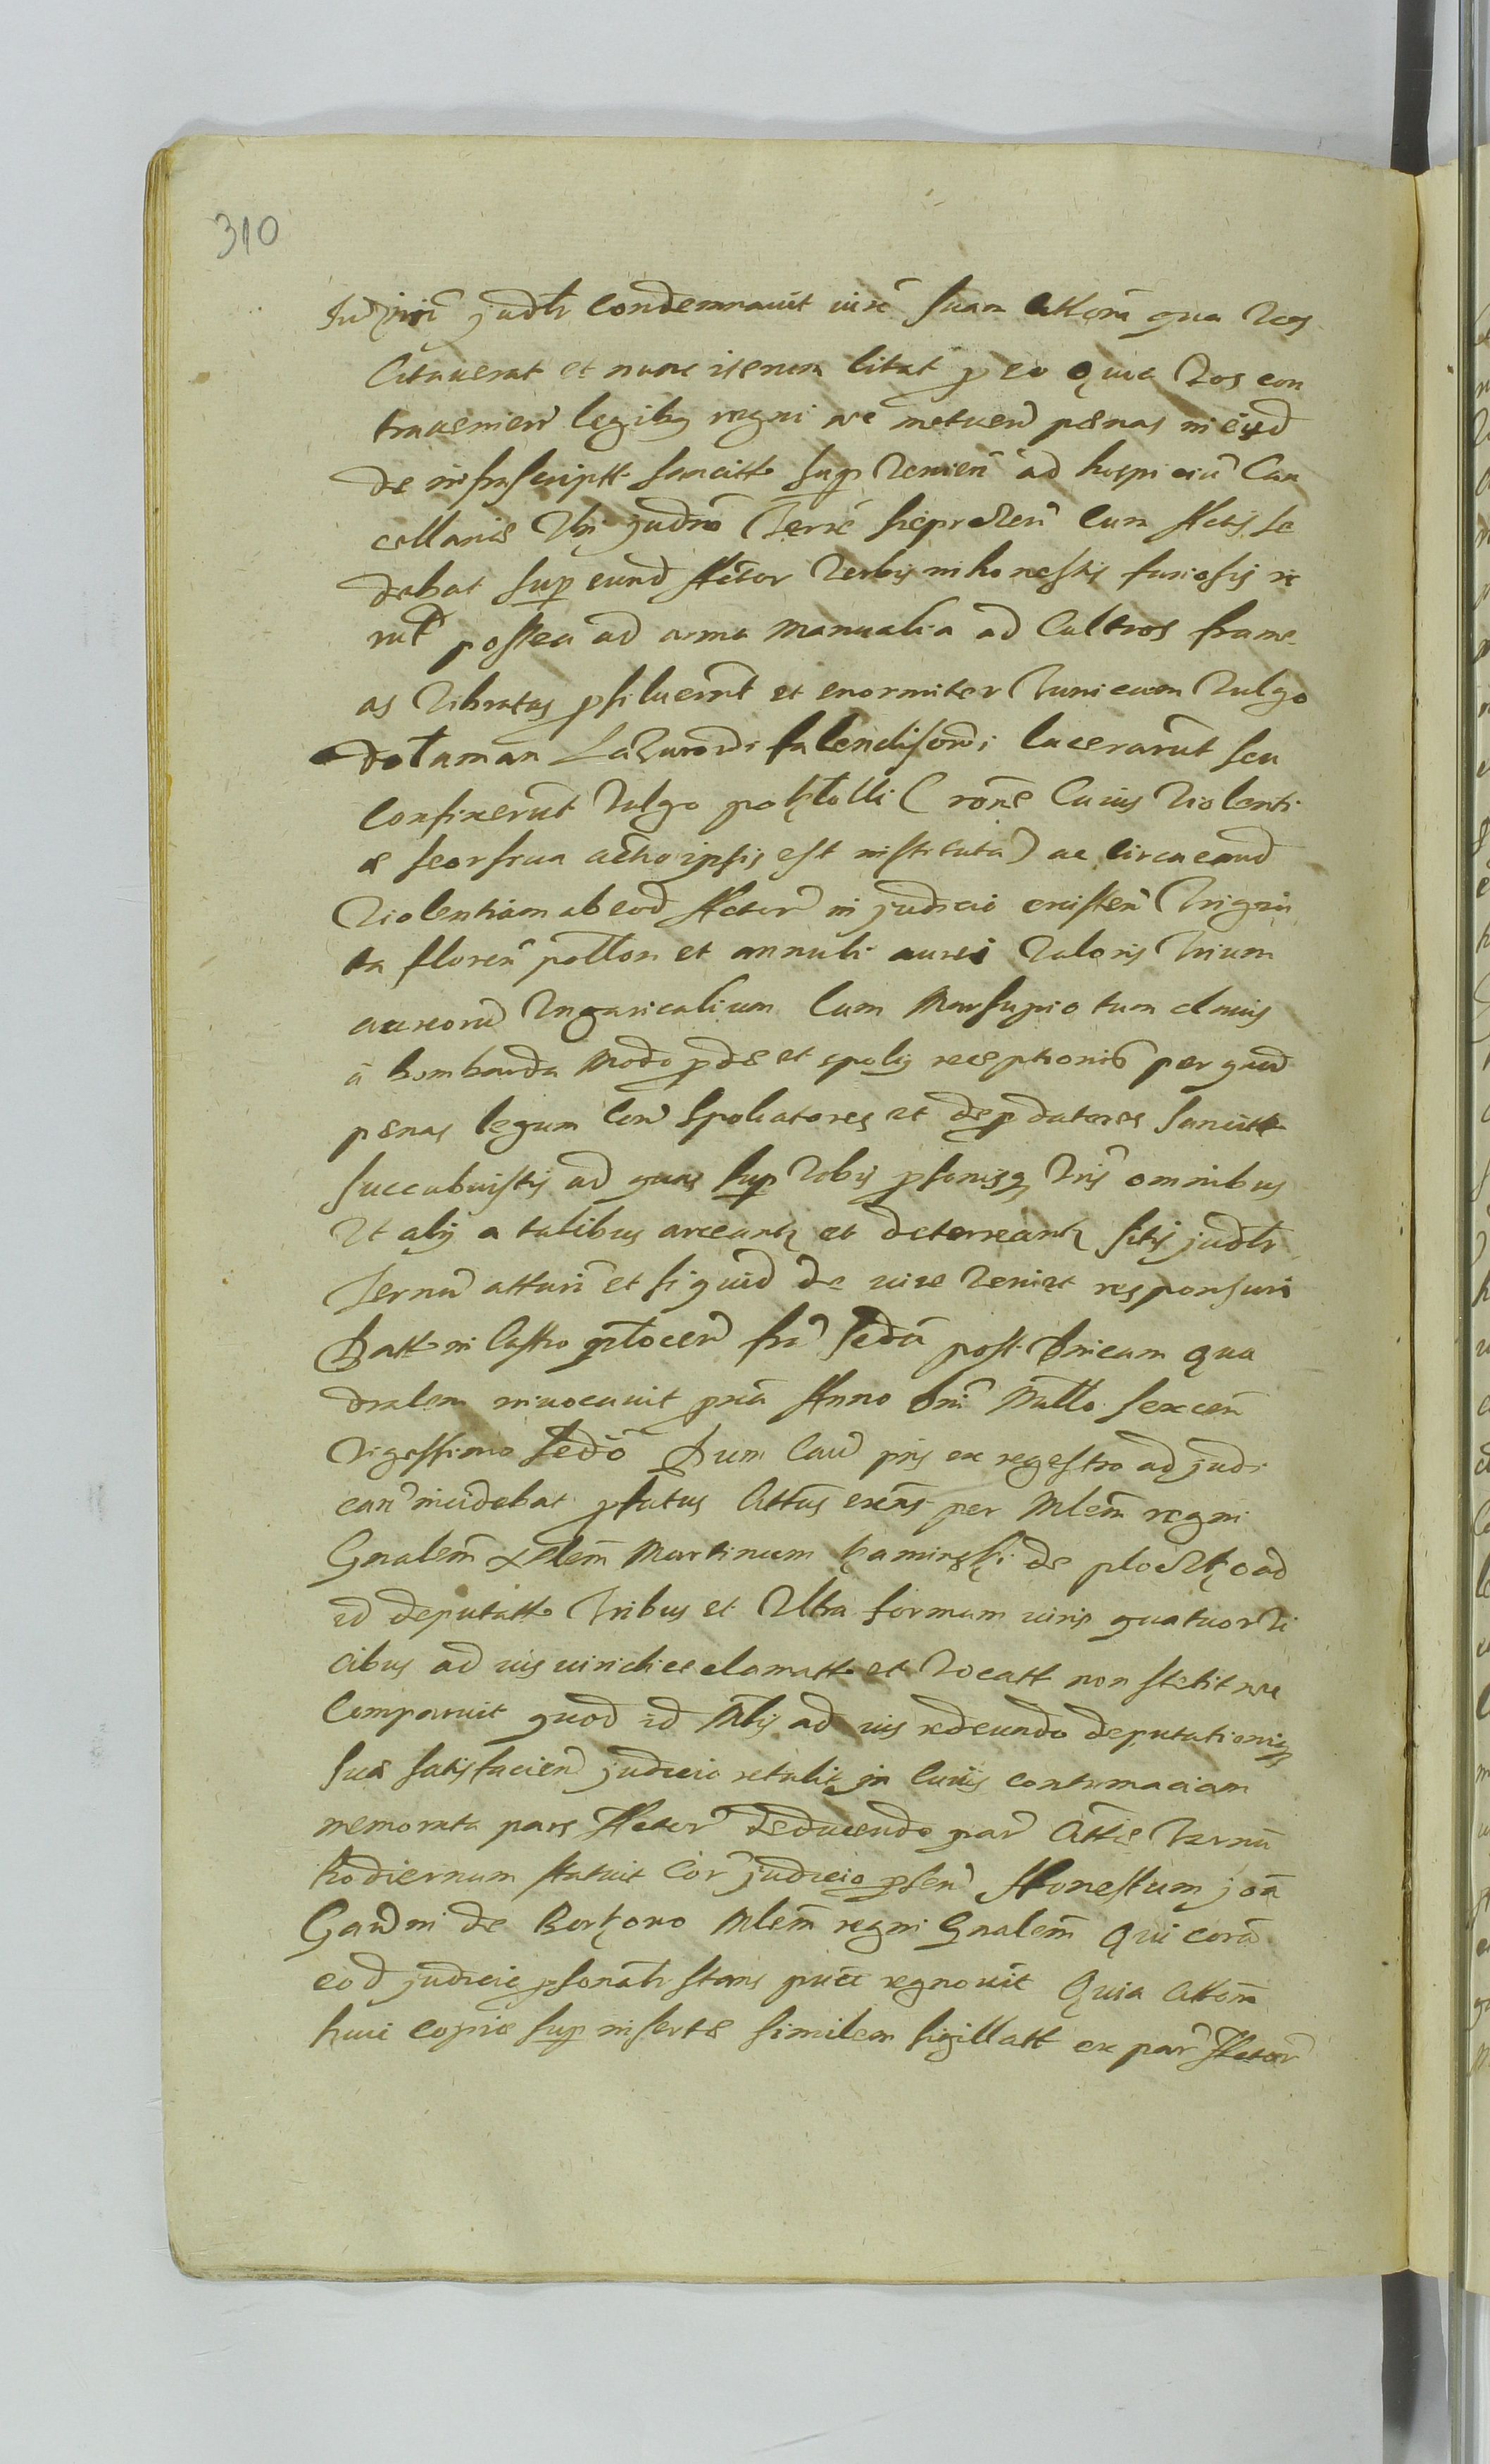 310
Jud prñ judtr condemnavit iure suam Attoriã qua vos
Citaverat et nunc iterum citat p eo Quia vos con
travenien legibus regni nec metuen pænas in eisd
de infrascriptt sancitt sup venien ad hospiciũ Can
cellariæ Vbi judiciũ Terrẽ sieprcen cum Actis se
debat sup eund Actor verbis inhonestis furiosis ir
rut postea ad arma manualia ad Cultros frame
as vibratas psiluerut et enormiter Tunicam vulgo
dołaman Lazurowi falendisowi lacerarut seu
Confixerut vulgo pokłolli (rone Cuius violenti
æ seorsiva actio ipsis est instituta) ac circa eand
violentiam ab eod Actor in judicio existen Trigin
ta floren pollon et annuli aurei valoris trium
aureoru Vngaricalium cum Marsupio tum clavis
a bombarda modo pdæ et spolii receptionis per quod
pænas legum con spoliatores et depdatores sancitt
succubuistis ad quas sup vobis psonisq vris omnibus
Vt alij a talibus arceantr et deterreantr sitis judtr
Ternũ attturi et si quid de iure veniet responsuri
Datt in Castro plocen fria secda post Dnicam qua
dralem invocavit pria Anno Dni Millo sexcen
vigessimo secdo Dum Caus pns ex regestro ad judi
can incidebat pfatus Attus exñs per Mlem regni
Gnalem pdem Martinum Kaminski de ploczk o ad
id deputatt tribus et Vltra formam iuris quatuor vi
cibus ad ius vindice clamatt et vocatt non stetit nec
Comparuit quod id Mlis ad ius redeundo deputationiqs
suæ satisfacien judicio retulit in cuius contumaciam
memorata pars Actor deducendo par Atte Ternũ
hodiernum statuit Cor judicio psen Honestum joã
Gawin de Borkowo Mlem regni Gnalem Qui corã
eod judicio psonatr stans puce regnovit Quia Attoria
huic copiæ sup insertæ similem sigillatt ex par Actor